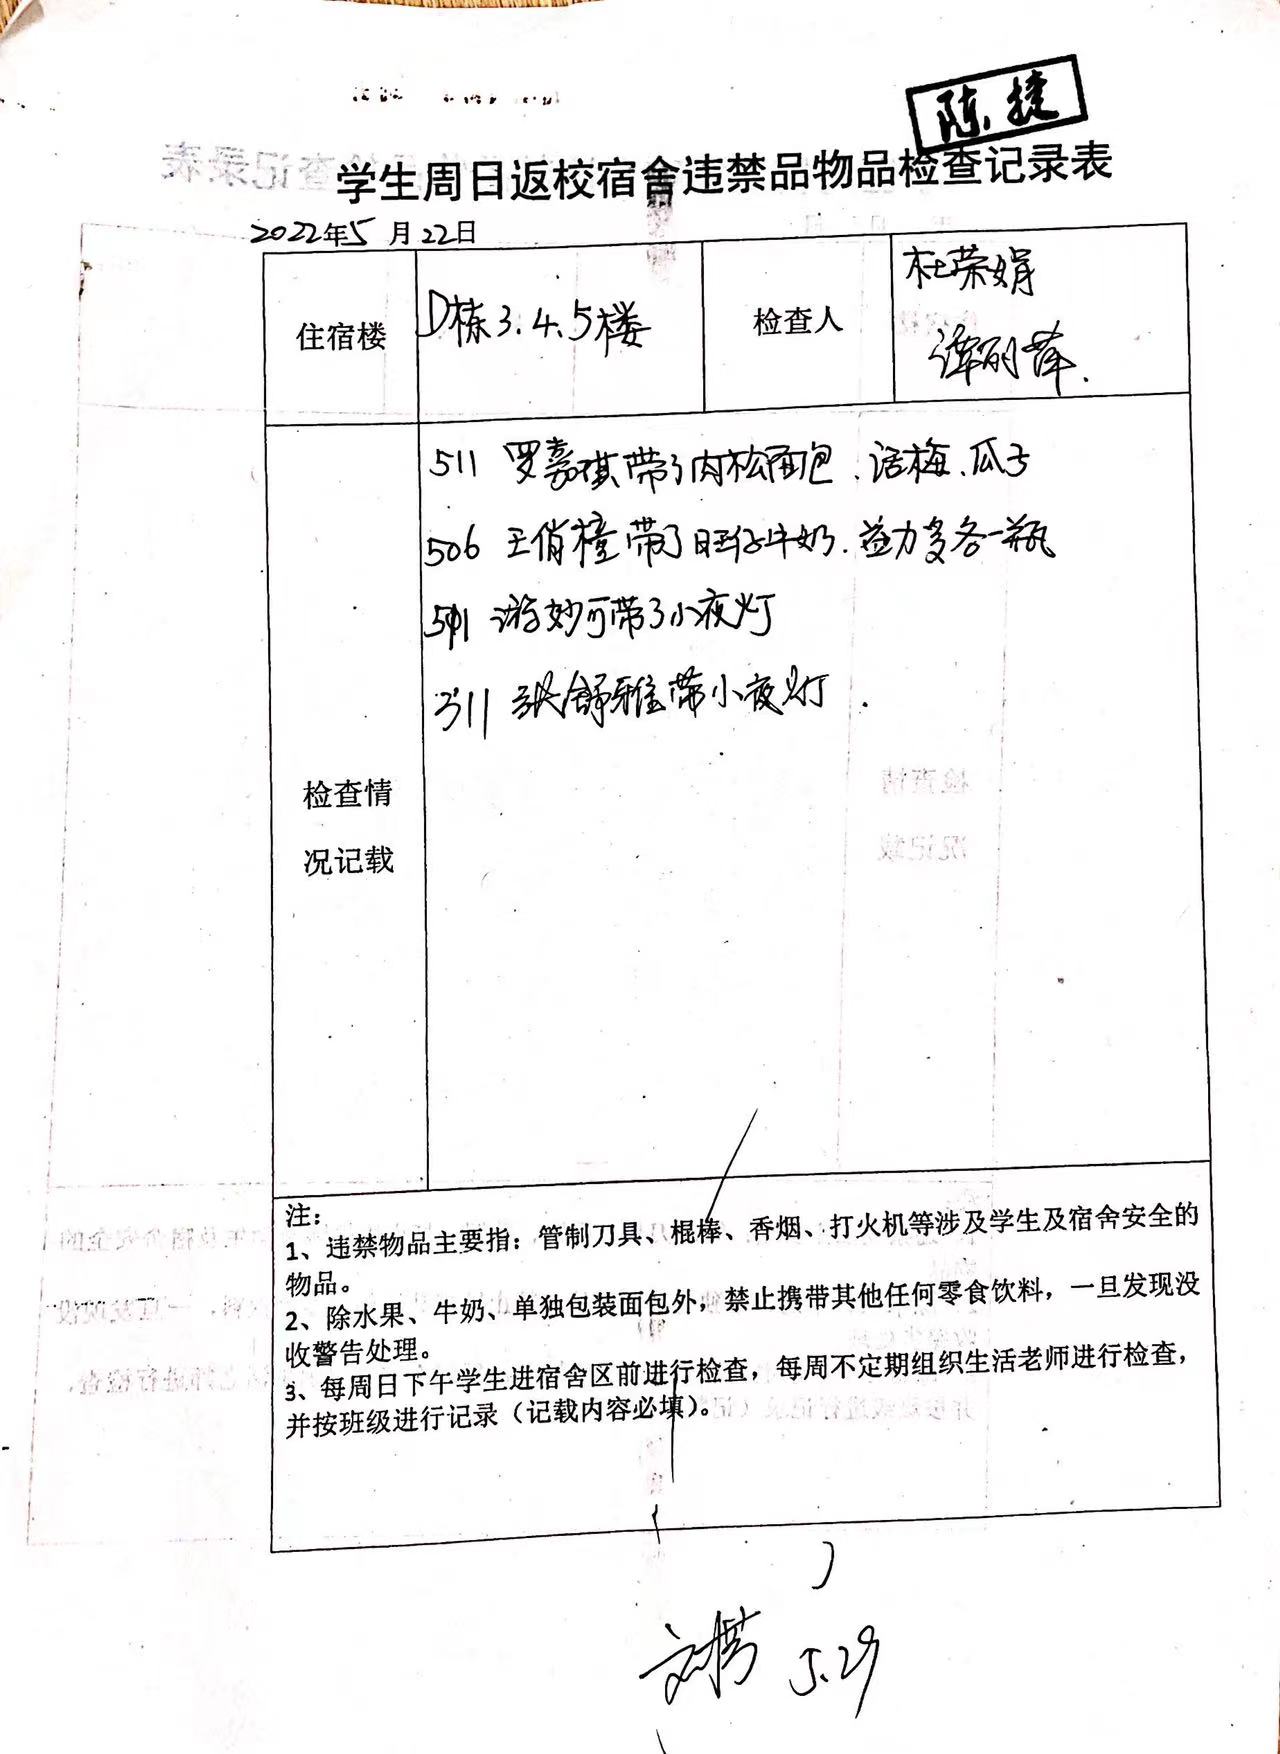 陈捷
学生周日返校宿舍违禁品物品检查记录表
2022年5月22日
住宿楼
D栋3.4.5楼
检查人
杜荣娟
谭丽萍.
检查情
况记载
511 罗嘉琪带了肉松面包、话梅、瓜子
506 王俏橦带了旺仔牛奶.益力多各一瓶
501 游妙可带了小夜灯
311 张舒雅带小夜灯.
注:
1、违禁物品主要指:管制刀具、棍棒、香烟、打火机等涉及学生及宿舍安全的
物品。
2、除水果、牛奶、单独包装面包外,禁止携带其他任何零食饮料,一旦发现没
收警告处理。
3、每周日下午学生进宿舍区前进行检查,每周不定期组织生活老师进行检查,
并按班级进行记录(记载内容必填)。
5.29